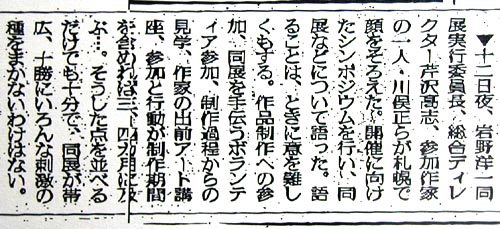 ▼十二日夜、岩野洋一同
展実行委員長、総合ディレ
クター芹沢高志、参加作家
の一人・川俣正らが札幌で
顔をそろえた。開催に向け
たシンポジウムを行い、同
展などについて語った。語
ることは、ときに意を難し
くもする。作品制作への参
加、同展を手伝うボランテ
ィア参加、制作過程からの
見学、作家の出前アート講
座、参加と行動が制作期間
を含めれば三、四カ月に及
ぶ…。そうした点を並べる
だけでも十分で、同展が帯
広、十勝にいろんな刺激の
種をまかないわけはない。